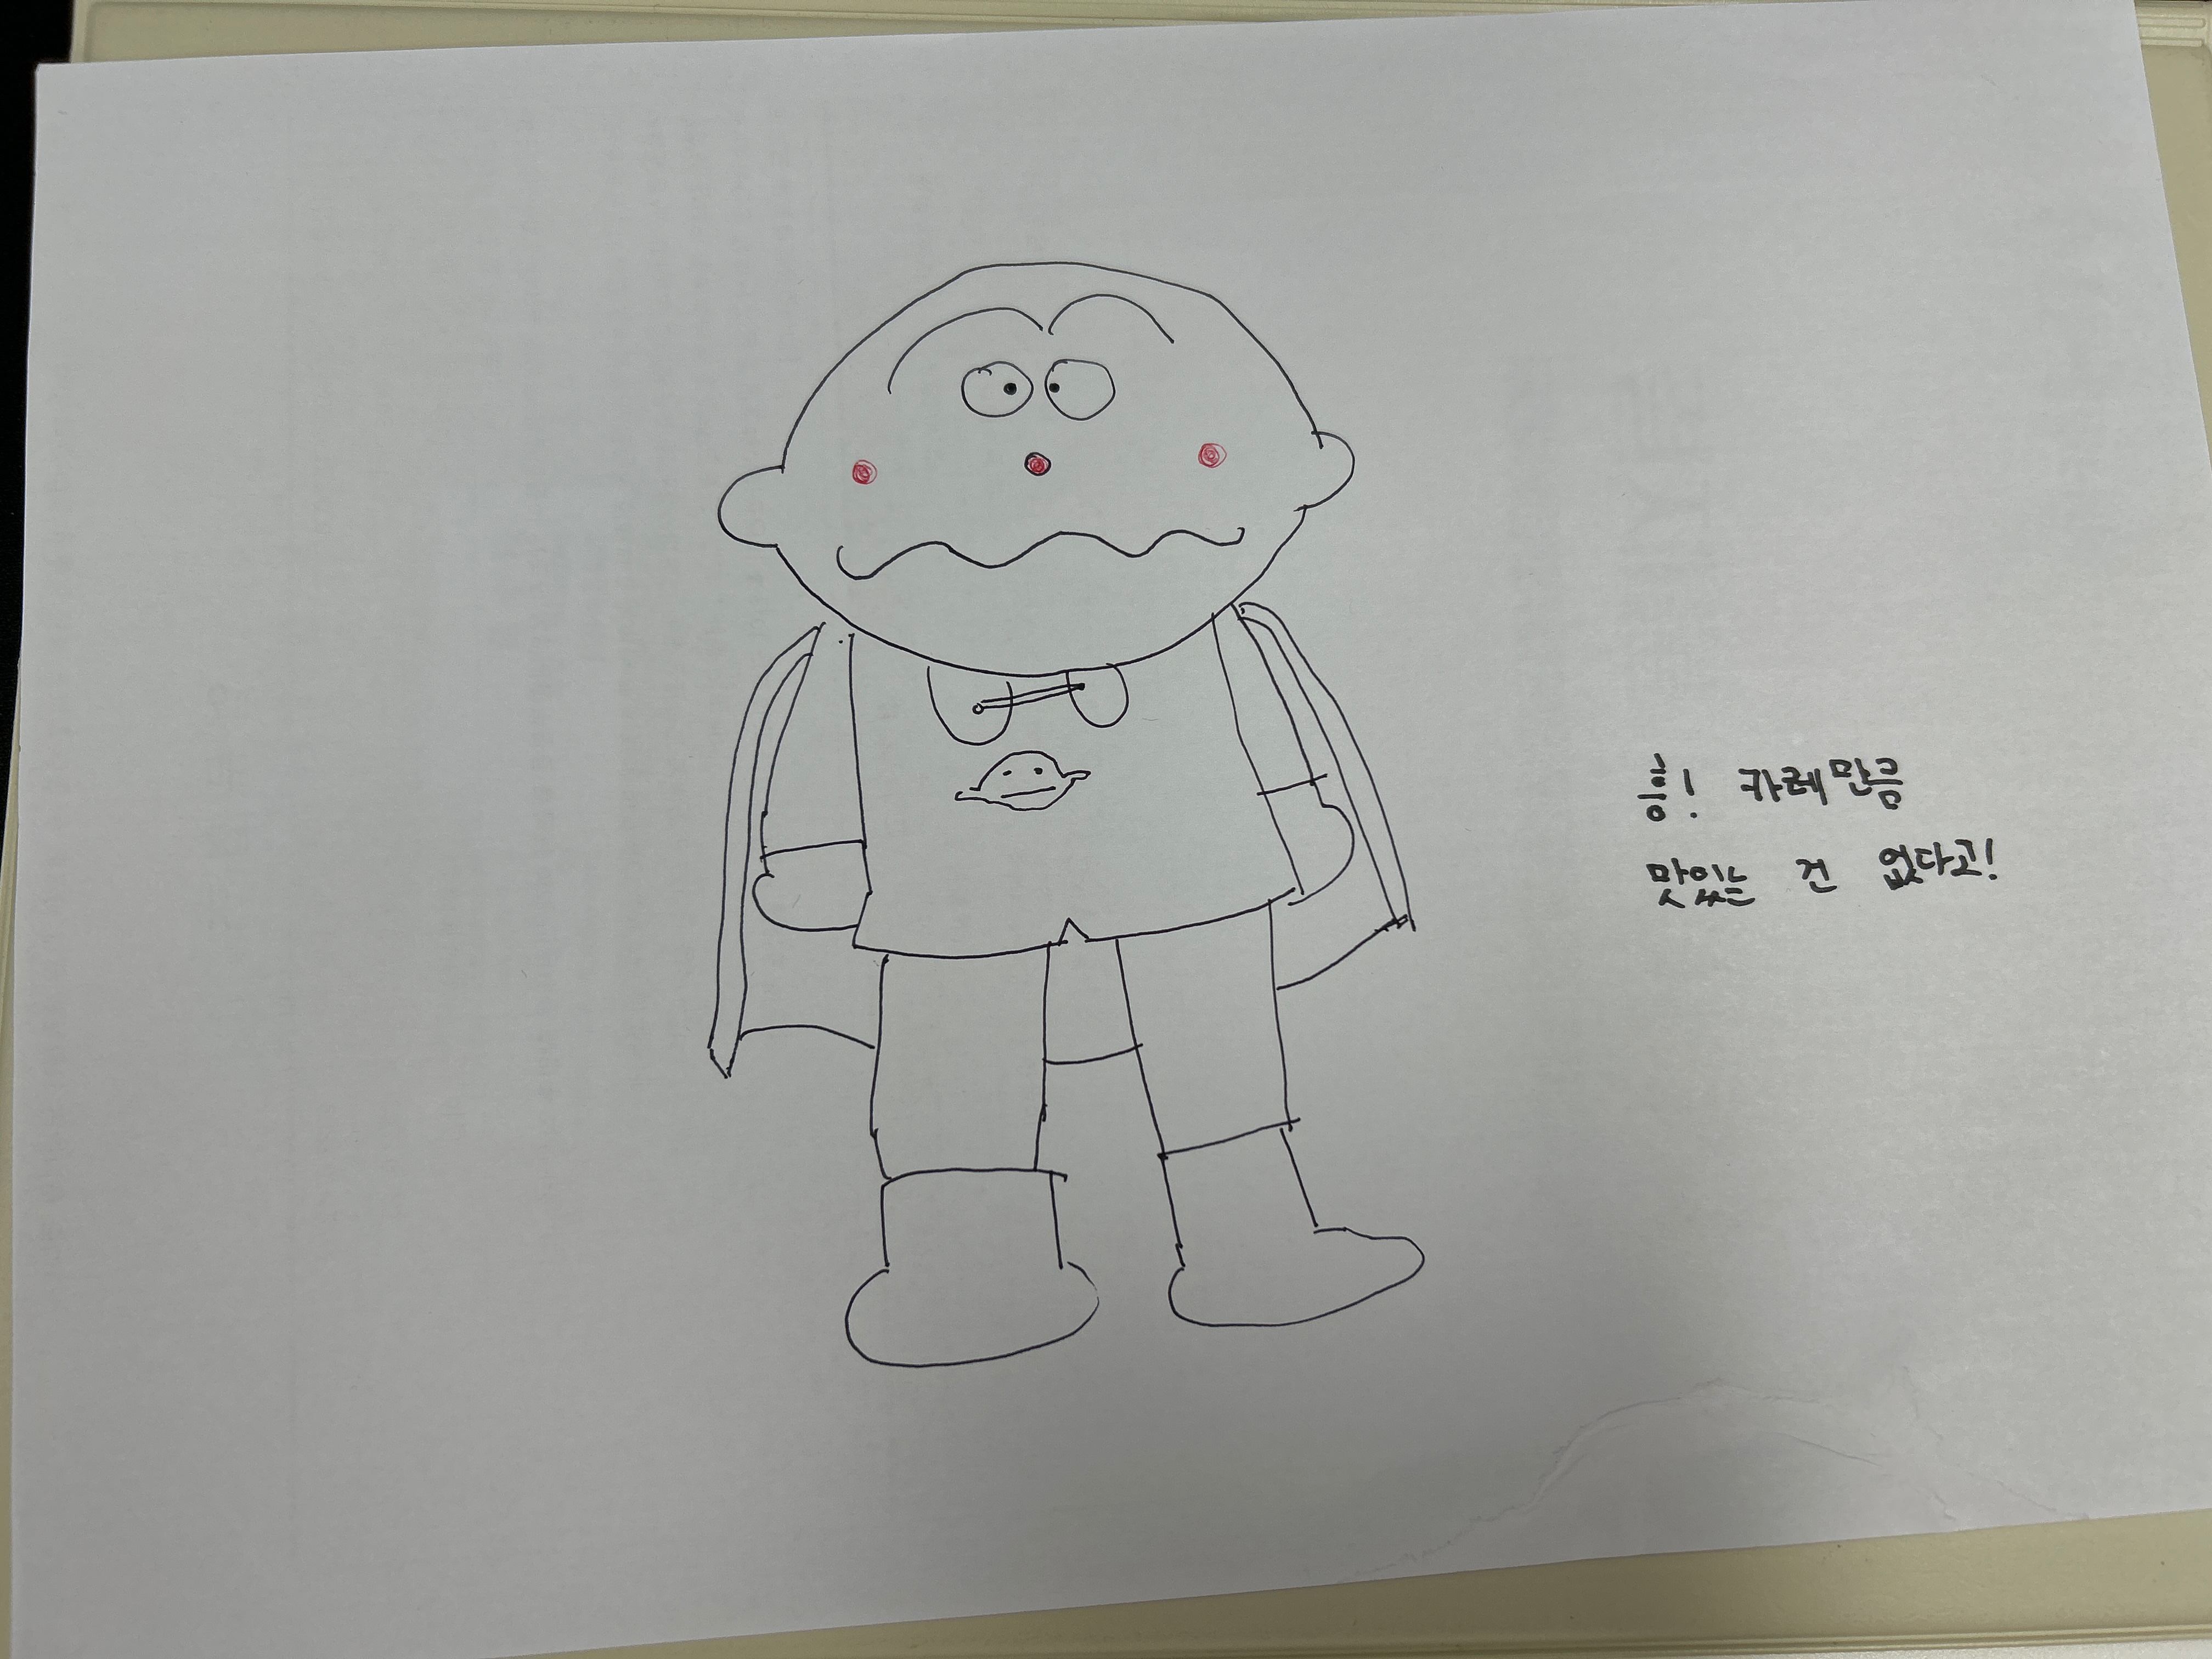 흥! 카레만큼
맛있는 건 없다고!